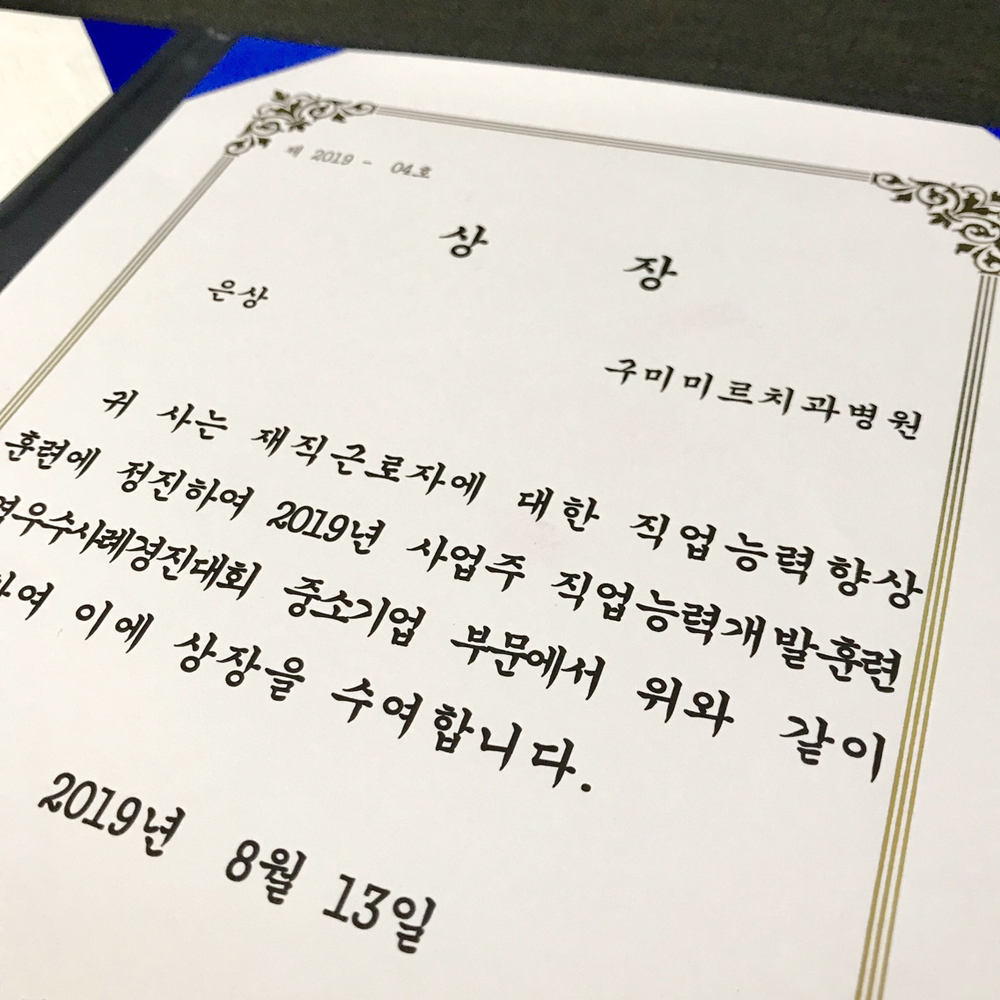 제 2019 - 04호
상 장
은상
구미미르치과병원
귀 사는 재직근로자에 대한 직업능력향상
훈련에 정진하여 2019년 사업주 직업능력개발훈련
우수사례경진대회 중소기업 부문에서 위와 같이
여 이에 상장을 수여합니다.
2019년 8월 13일